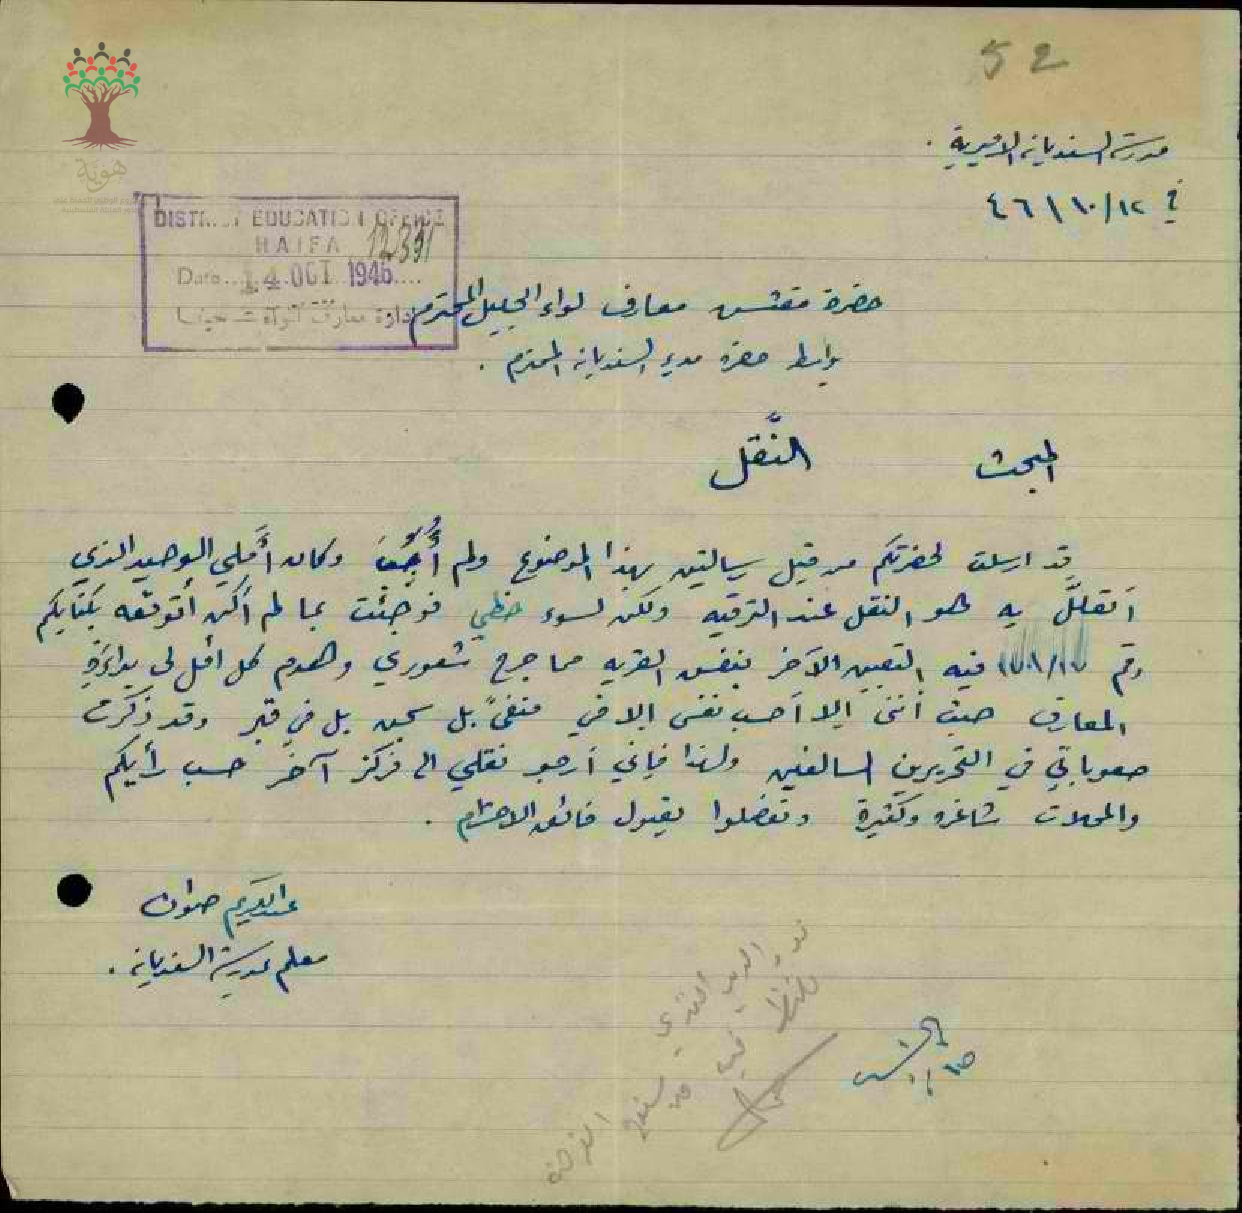 52
مدرسة السنديانة الاميرية .
في ١٢/١٠/٤٦
DISTRICT EDUCATION OFFICE
HAIFA 12391
Date 14 OCT 1946
إدارة معارف لواء حيفا
هوية
حضرة مفتش معارف لواء الجليل المحترم
بواسطة حضرة مدير السنديانة المحترم .
المبحث النَّقل
قد ارسلت لحضرتكم من قبل رسالتين بهذا الموضوع ولم أُجَب وكان أملي الوحيد الذي
اتعلَّل به هو النقل عند الترقيه ولكن لسوء حظي فوجئت بما لم أكن أتوقعه بكتابكم
رقم فيه التعيين الآخر بنفس القريه مما جرح شعوري وهدم كل امل لي بإدارة
المعارف حيث أنني لا أحسب نفسي إلا في منفىً بل سجن بل في قبر وقد ذكرت
صعوباتي في التحريرين السالفين ولهذا فإني أرجو نقلي الى مركز آخر حسب رأيكم
والمحلات شاغره وكثيرة وتفضلوا بقبول فائق الاحترام .
عبد الكريم
معلم بمدرسة السنديانة .